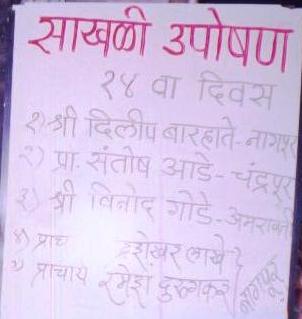 साखळी उपोषण
१४ वा दिवस
१) श्री दिलीप बारहाते-नागपूर
२) प्रा. संतोष आडे-चंद्रपूर
३) श्री विनोद गोडे-अमरावती
४) प्राच शेखर लाखे
५) प्राचार्य रमेश दुरुगकर
नागपूर